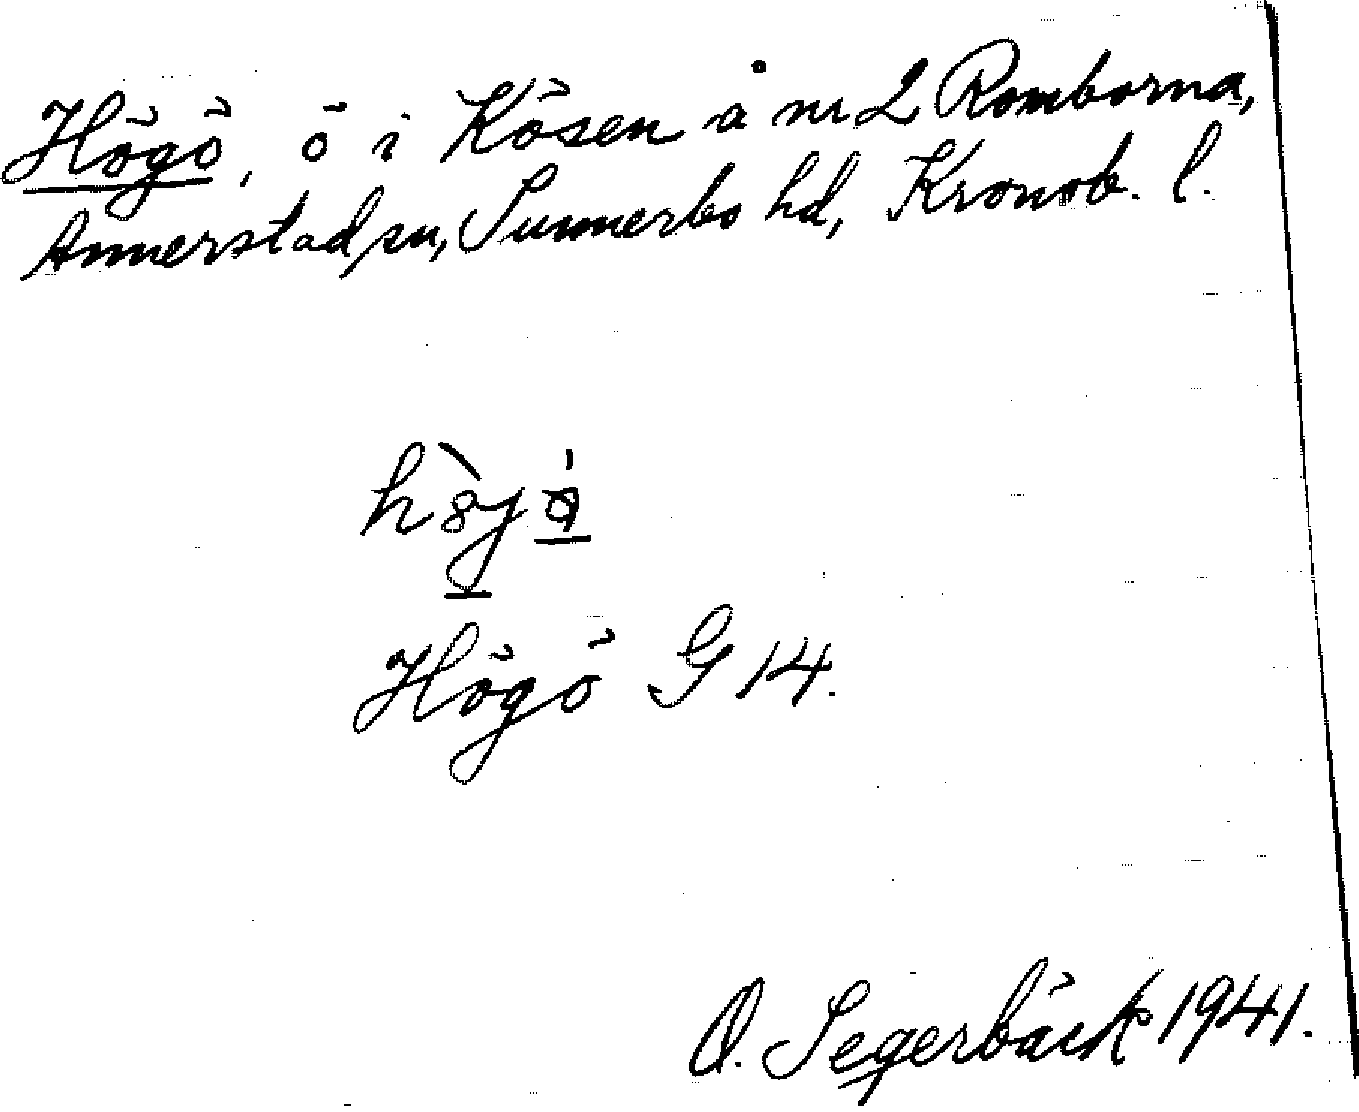 Högö, ö i Kösen å nr 2 Romborna,
Annerstad sn, Sunnerbo hd, Kronob. l.
Högö G 14.
O. Segerbäck 1941.